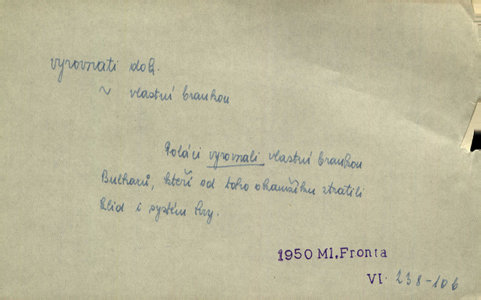 vyrovnati dok.
~ vlastní brankou
Poláci vyrovnali vlastní brankou
Bulharů, kteří od toho okamžiku ztratili
klid i systém hry.
1950 Ml.Fronta
VI. 238-106